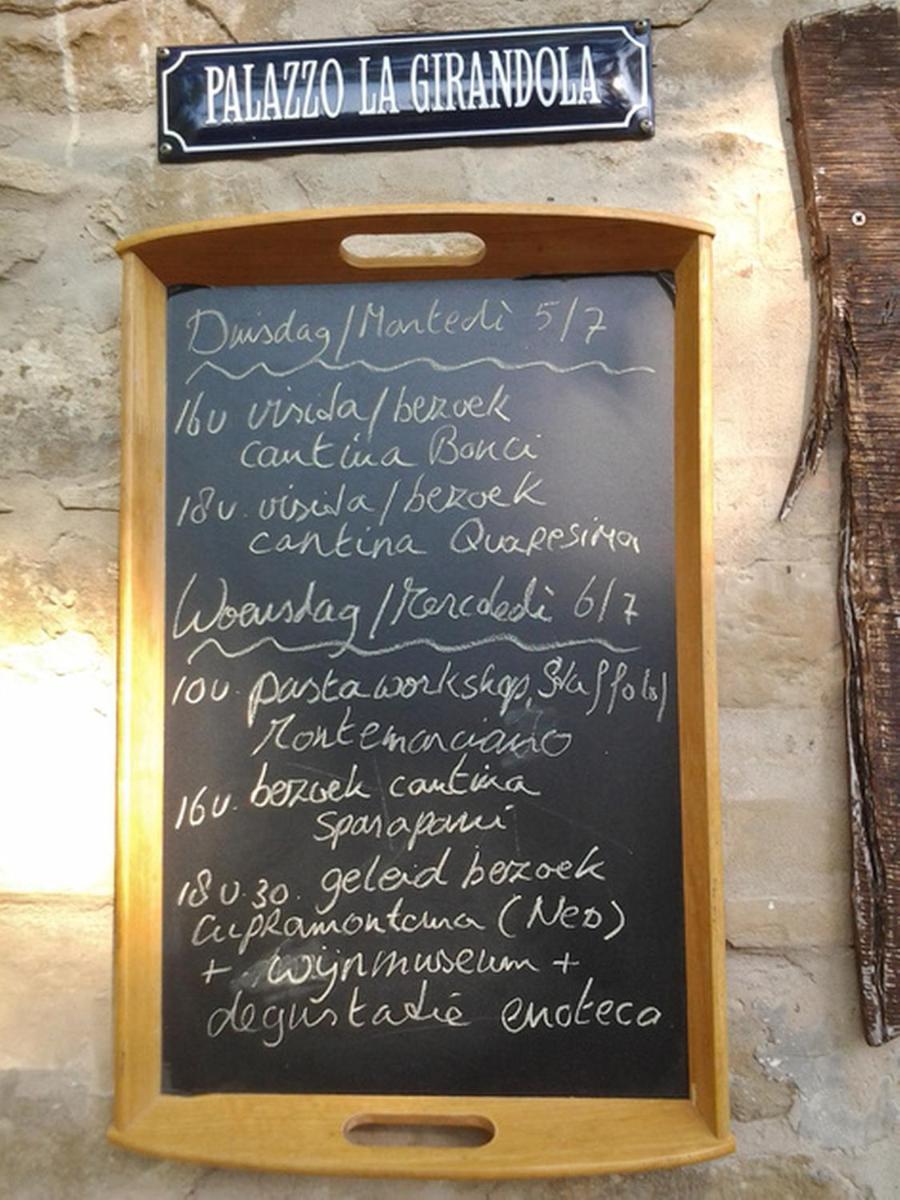 PALAZZO LA GIRANDOLA
Dinsdag/Martedì 5/7
16u visida/bezoek
cantina Bonci
18u. visida/bezoek
cantina Quaresima
Woensdag/Mercoledì 6/7
10u. pastaworkshop, Staffolo/
Montemarciano
16u. bezoek cantina
Sparapani
18u.30. geleid bezoek
Cupramontana (Ned)
+ wijnmuseum +
degustatie enoteca